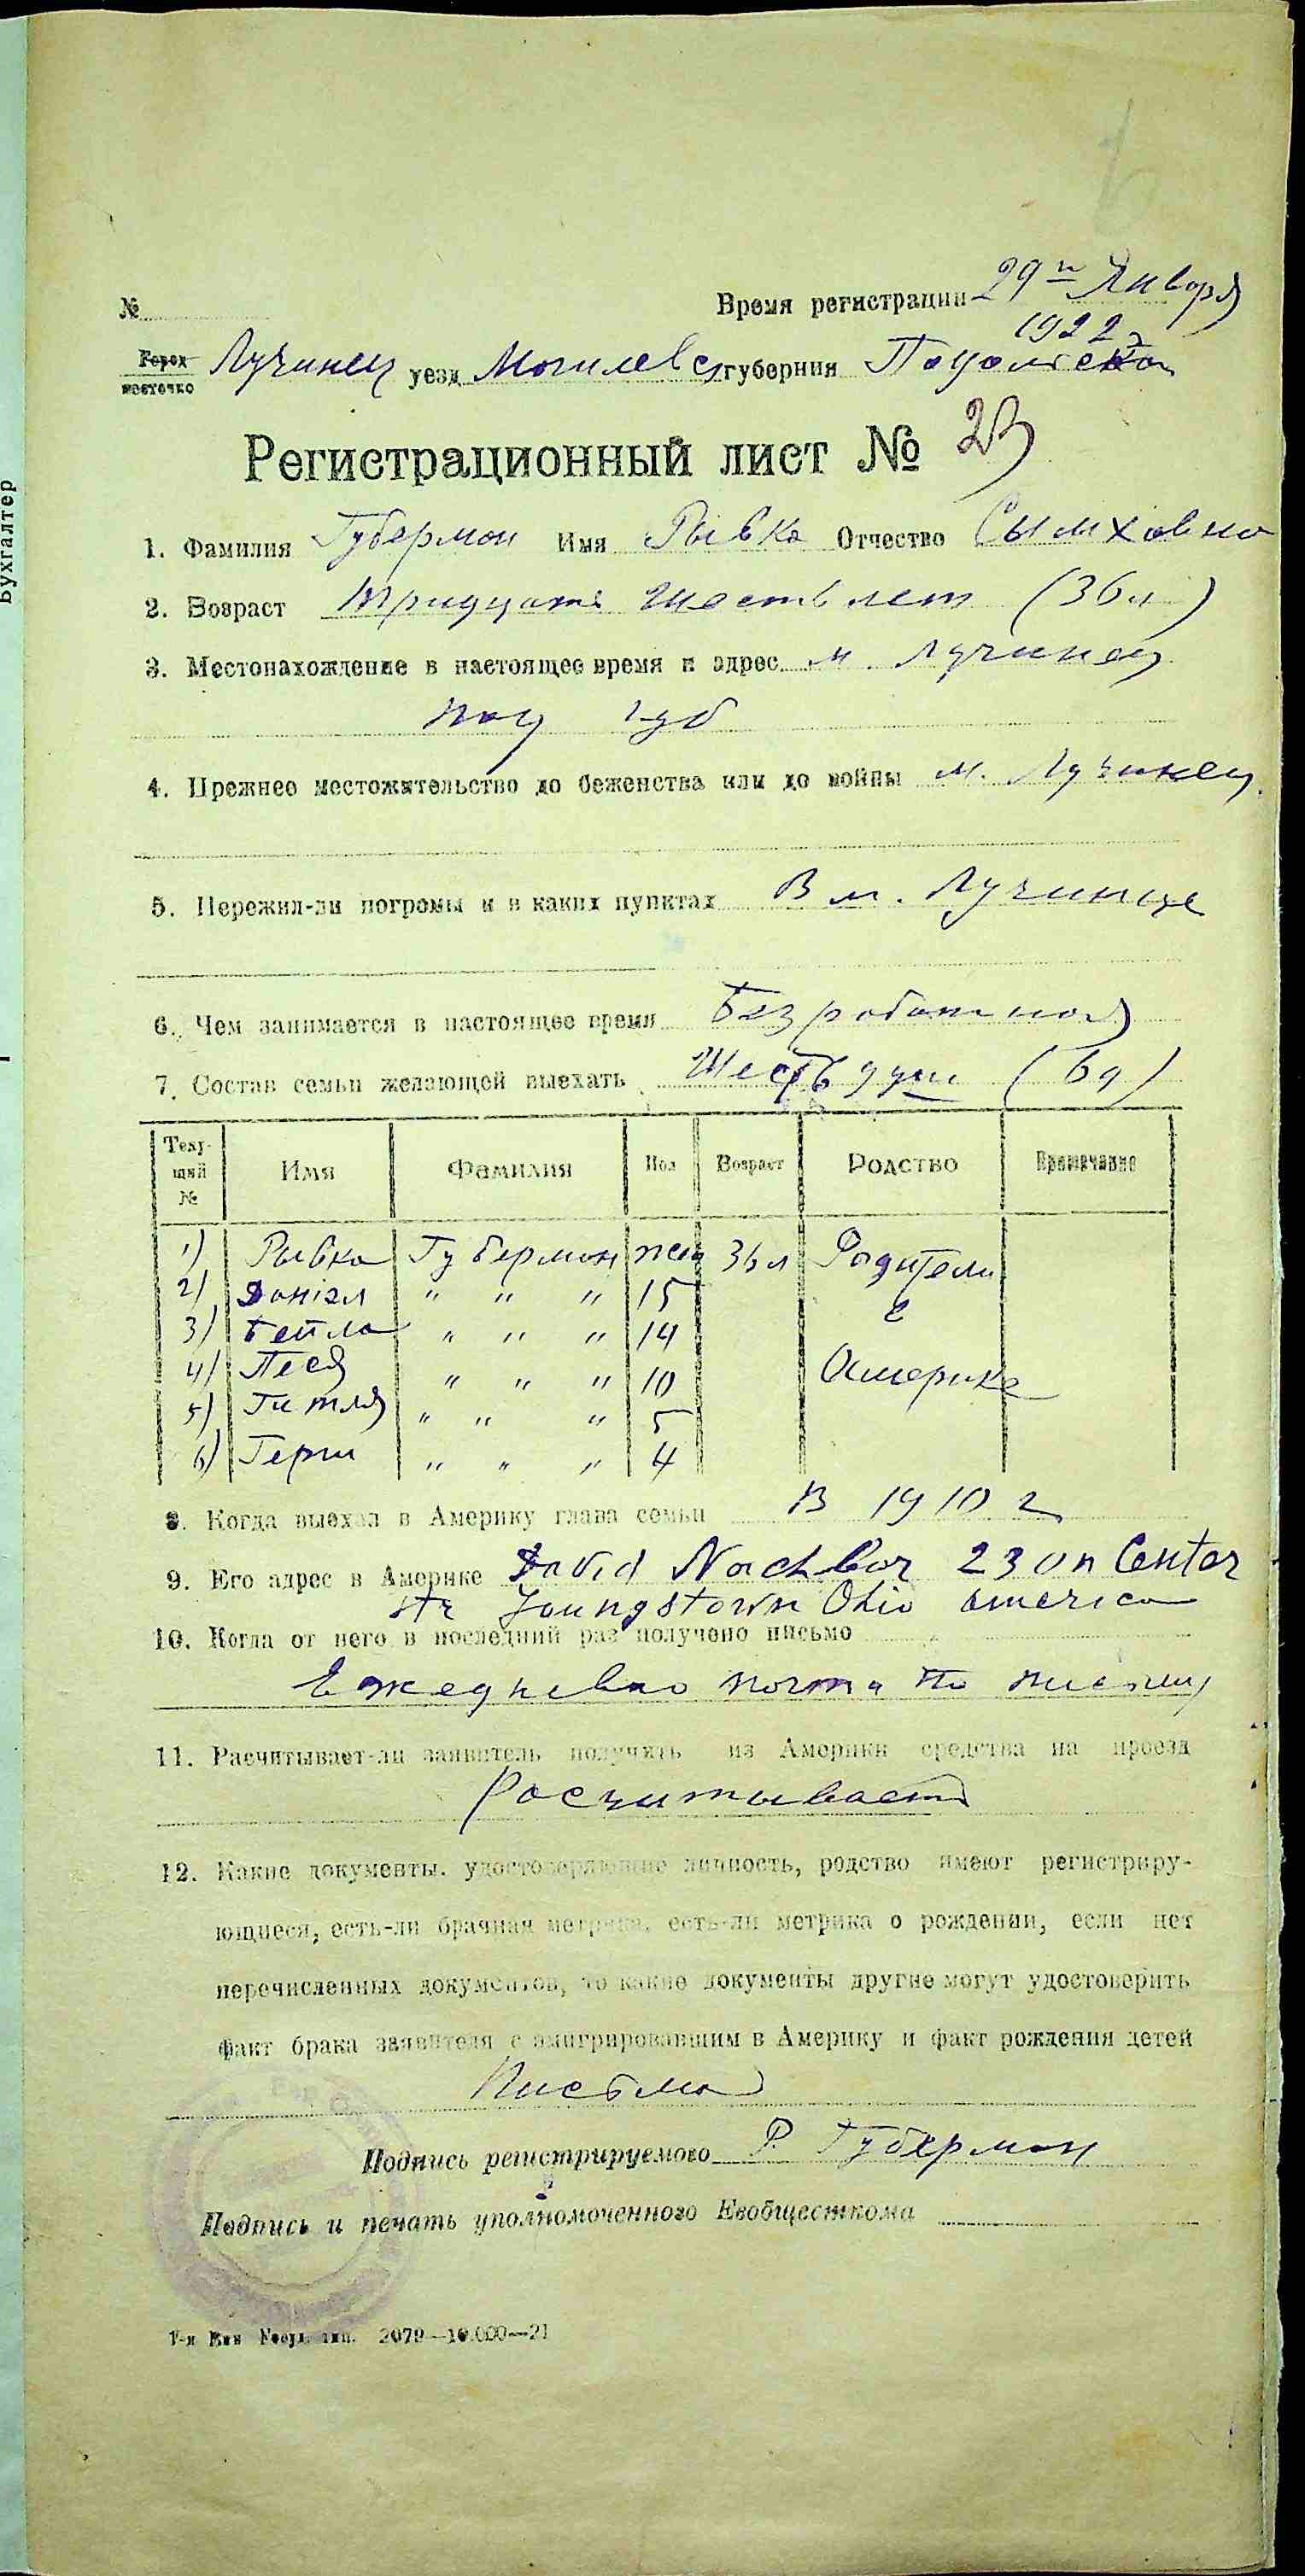 Бухгалтер
№ Время регистрации 29го Января
1922 г
Город
местечко Лучинец уезд Могилевс губерния Подольской
Регистрационный лист № 23
1. Фамилия Губермон Имя Рывка Отчество Сымховно
2. Возраст тридцать шесть лет (36 л)
3. Местонахождение в настоящее время и адрес м. Лучинец
под губ
4. Прежнее местожительство до беженства или до войны м. Лучинец.
5. Пережил-ли погромы и в каких пунктах В м. Лучинце
6. Чем занимается в настоящее время Безработная
7. Состав семьи желающей выехать Шесть душ (6 д)
Теку-
щий
№ Имя Фамилия Пол Возраст Родство Примечание
1) Рывка Губермон жен 36 л Родители
2) Даніэл " " " 15 в
3) Бейла " " " 14
4) Песя " " " 10 Америке
5) Гитля " " " 5
6) Герш " " " 4
8. Когда выехал в Америку глава семьи В 1910 г
9. Его адрес в Америке David Nachbar 23 on Center
str Youngstown Ohio america
10. Когда от него в последний раз получено письмо
Ежедневно почта по письму
11. Расчитывает-ли заявитель получить из Америки средства на проезд
Росчитывает
12. Какие документы. удостоверяющие личность, родство имеют регистриру-
ющиеся, есть-ли брачная метрика, есть-ли метрика о рождении, если нет
перечисленных документов, то какие документы другие могут удостоверить
факт брака заявителя с эмигрировавшим в Америку и факт рождения детей
Письма
Подпись регистрируемого Р. Губермон
Подпись и печать уполномоченного Евобщесткома
2079—10.000—21